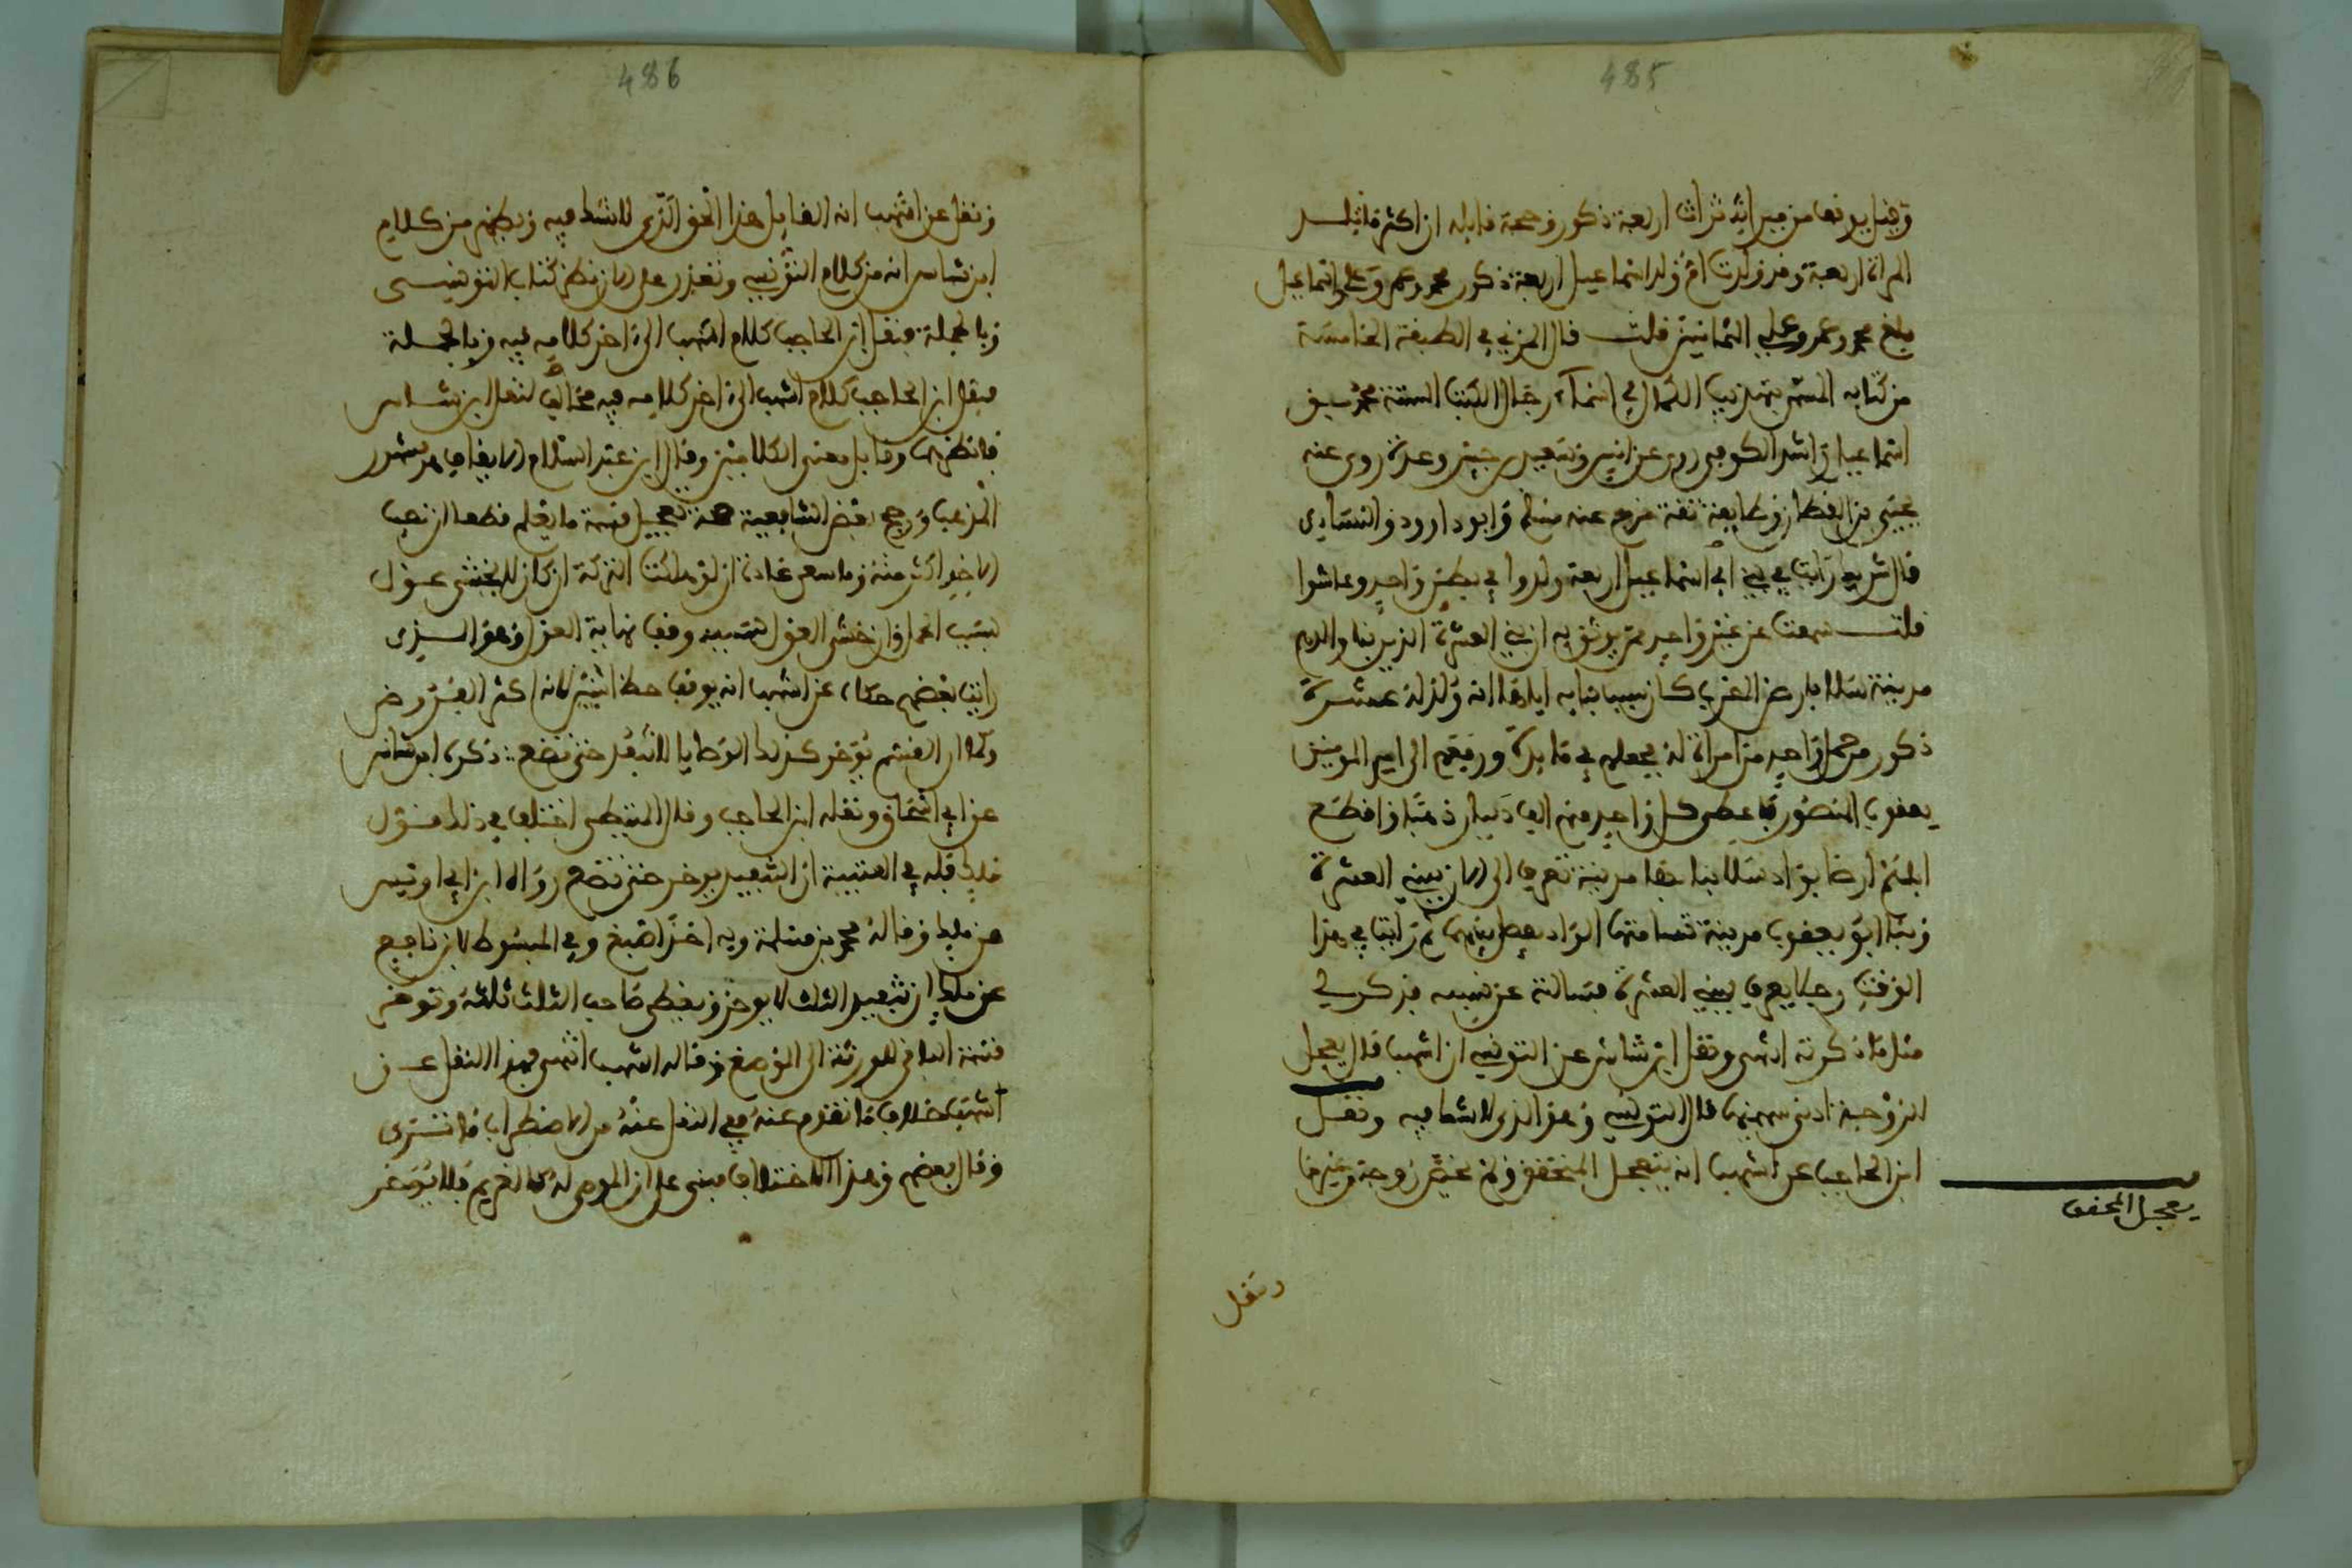 485
وقيل يوقف من ميراثه تراث اربعة ذكور وحجة قايله ان اكثر ما تلد
المراة اربعة وقد ولدت ام ولد اسماعيل اربعة ذكور محمد وعمر وعلي واسماعيل
بلغ محمد وعمر وعلي الثمانين قلت قال المزي في الطبقة الخامسة
من كتابه المسمى بتهذيب الكمال في اسماء رجال الكتب الستة محمد بن
اسماعيل راشد الكوفي روى عن انس وسعيد بن جبير وعدة روى عنه
يحيى بن القطان وطايفة ثقة خرج عنه مسلم وابو داوود والنساءي
قال شريك رايت في بني ابي اسماعيل اربعة ولدوا في بطن واحد وعاشوا
قلت سمعت عن غير واحد ممن يوثق به ان بني العشرة الذين بنا والدهم
مدينة سلا بارض المغرب كان سبب بنايه اياها انه ولد له عشرة
ذكور من حمل واحد من امراة له فجعلهم في مايدة ورفعهم الى امير المومنين
يعقوب المنصور فاعطى كل واحد منهم الف دينار ذهبا واقطع
اباهم ارضا بواد سلا بنا بها مدينة تعرف الى الان ببني العشرة
وبنا ابو يعقوب مدينة تسامتها الواد يفصل بينهما ثم رايت في هذا
الوقت رجلا يعرف ببني العشرة فسالته عن نسبه فذكر لي
مثل ما ذكرته انتهى ونقل ابن شاس عن التونسي ان اشهب قال يعجل
الزوجة ادنى سهميها قال التونسي وهو الذي لا شك فيه ونقل
ابن الحاجب عن اشهب انه يتعجل المتحقق ولم يخص زوجة وغيرها
يعجل المحقق
ونقل
486
ونقل عن اشهب انه القايل هذا الحق الذي لا شك فيه ويظهر من كلام
ابن شاس انه من كلام التونسي وتعذر علي الان نظر كتاب التونسي
وبالجملة فنقل ابن الحاجب كلام اشهب الى اخر كلامه فيه وبالجملة
فنقل ابن الحاجب كلام اشهب الى اخر كلامه فيه مخالف لنقل ابن شاس
فانظرهما وقابل معنى الكلامين وقال ابن عبد السلام الايقاف هو مشهور
المذهب ورجح بعض الشافعية تعجيل قسمة ما يعلم قطعا ان نصيب
الاخر اكثر منه وما سعى عادة ان لو هلكت التركة ان كان لا يخشى عزل
بسبب الحمل وان خشي العول بسببه وقف نهاية العول وهو الذي
رايت بعضهم حكاه عن اشهب انه يوقف حظ اثنين لانه اكثر الفروض
وكما ان القسم يؤخر كذلك الوصايا لا تنفذ حتى تضع ذكره ابن شاس
عن ابي اسحاق ونقله ابن الحاجب وقال الباجي اختلف في ذلك فنقول
مالك قبله في العتبية ان التنفيذ يوخر حتى تضع رواه ابن ابي اويس
عن مالك وقاله محمد بن مسلمة وبه اخذ اصبغ وفي المبسوط لابن نافع
عن مالك ان تنفيذ الثلث لا يوخر ويعطى صاحب الثلث ثلثه وتوخر
قسمة الباقي للورثة الى الوضع وقاله اشهب انتهى فهذا النقل عن
اشهب خلاف ما تقدم عنه ففي النقل عنه من الاضطراب ما تترى
وقال بعضهم وهذا الاختلاف مبني على ان الموصى له كالغريم فلا يؤخر